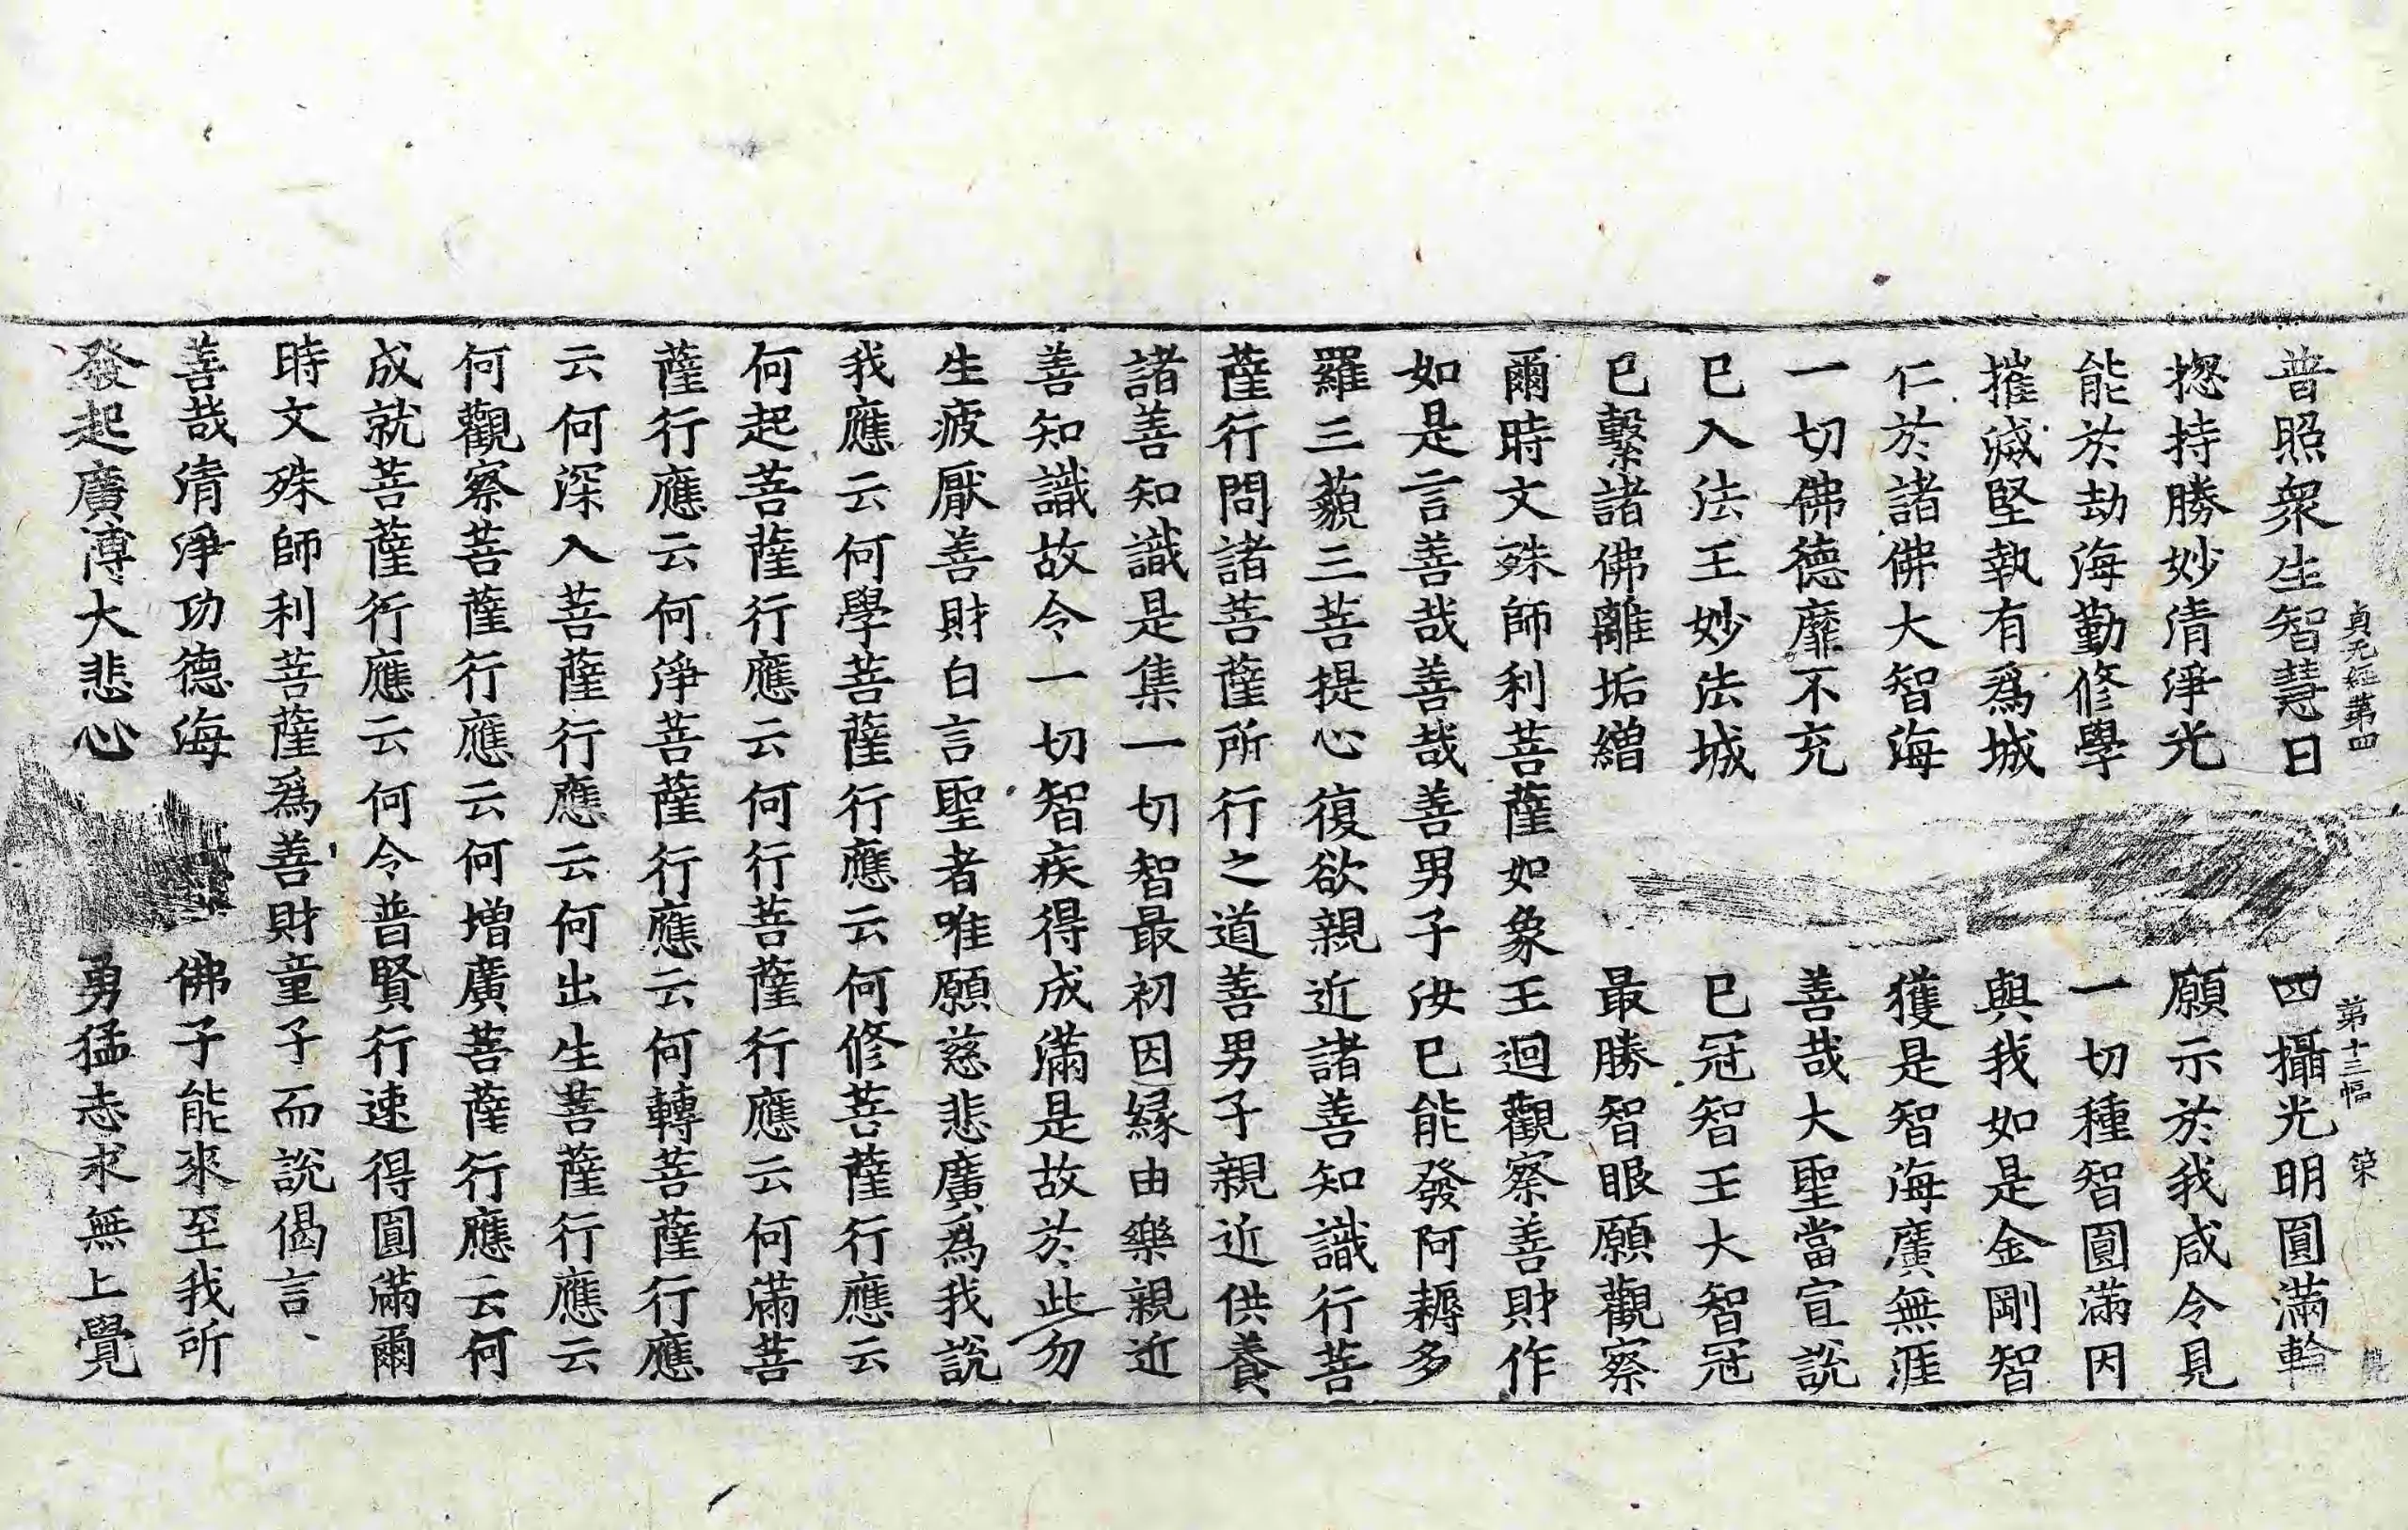 貞元經第四 第十三幅 榮
普照衆生智慧日 四攝光明圓滿輪
揔持勝妙清淨光 願示於我咸令見
能於劫海勤修學 一切種智圓滿因
摧滅堅執有爲城 與我如是金剛智
仁於諸佛大智海 獲是智海廣無涯
一切佛德靡不充 善哉大聖當宣說
已入法王妙法城 已冠智王大智冠
已繫諸佛離垢繒 最勝智眼願觀察
爾時文殊師利菩薩如象王迴觀察善財作
如是言善哉善哉善男子汝已能發阿耨多
羅三藐三菩提心復欲親近諸善知識行菩
薩行問諸菩薩所行之道善男子親近供養
諸善知識是集一切智最初因緣由樂親近
善知識故令一切智疾得成滿是故於此勿
生疲厭善財白言聖者唯願慈悲廣爲我說
我應云何學菩薩行應云何修菩薩行應云
何起菩薩行應云何行菩薩行應云何滿菩
薩行應云何淨菩薩行應云何轉菩薩行應
云何深入菩薩行應云何出生菩薩行應云
何觀察菩薩行應云何增廣菩薩行應云何
成就菩薩行應云何令普賢行速得圓滿爾
時文殊師利菩薩爲善財童子而說偈言
善哉清淨功德海 佛子能來至我所
發起廣博大悲心 勇猛志求無上覺